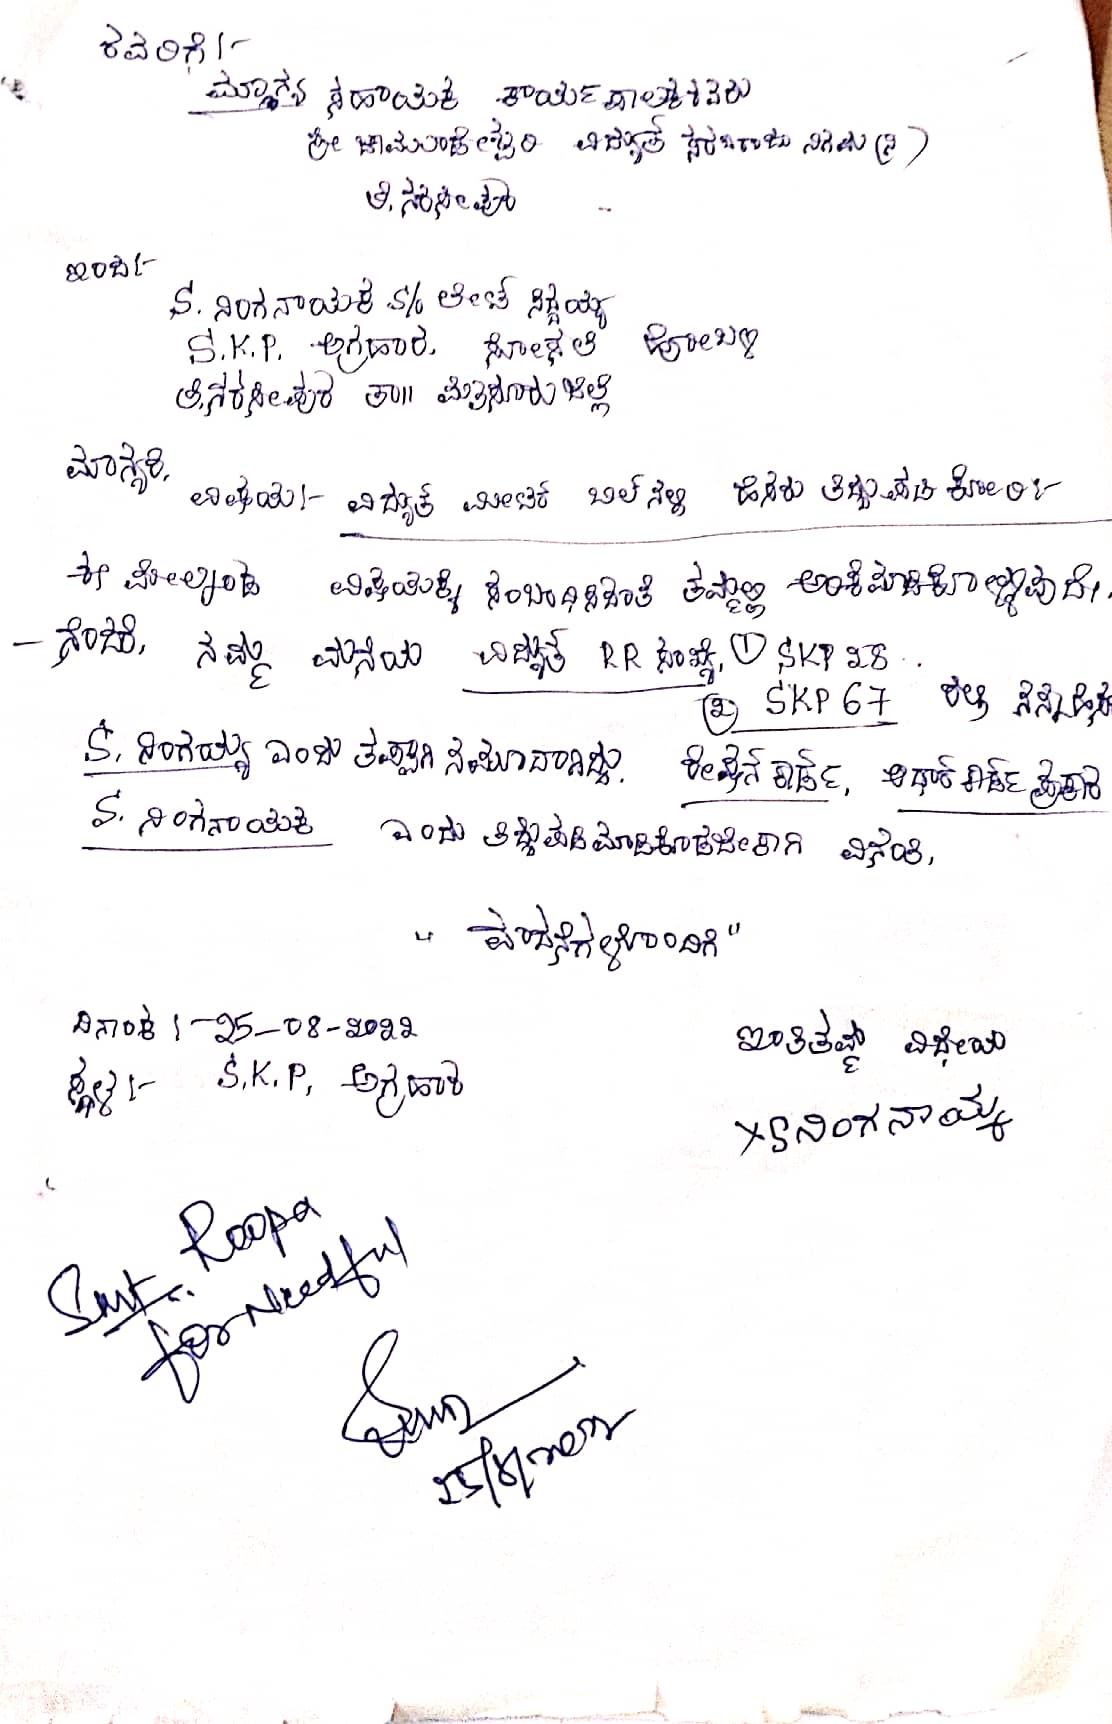 ರವರಿಗೆ:-
ಮಾನ್ಯ ಸಹಾಯಕ ಕಾರ್ಯಪಾಲಕರವರು
ಶ್ರೀ ಚಾಮುಂಡೇಶ್ವರಿ ವಿದ್ಯುತ್ ಸರಬರಾಜು ನಿಗಮ (ನಿ)
ತಿ.ನರಸೀಪುರ
ಇಂದ:-
S. ನಿಂಗನಾಯಕ S/o ಲೇಟ್ ಸಿದ್ದಯ್ಯ
S.K.P. ಅಗ್ರಹಾರ. ಸೋಸಲೆ ಹೋಬಳಿ
ತಿ.ನರಸೀಪುರ ತಾ|| ಮೈಸೂರು ಜಿಲ್ಲೆ
ಮಾನ್ಯರೆ,
ವಿಷಯ:- ವಿದ್ಯುತ್ ಮೀಟರ್ ಬಿಲ್ ನಲ್ಲಿ ಹೆಸರು ತಿದ್ದುಪಡಿ ಕೋರಿ:-
ಈ ಮೇಲ್ಕಂಡ ವಿಷಯಕ್ಕೆ ಸಂಬಂಧಿಸಿದಂತೆ ತಮ್ಮಲ್ಲಿ ಅರಿಕೆಮಾಡಿಕೊಳ್ಳುವುದೇ.
- ನೆಂದರೆ, ನಮ್ಮ ಮನೆಯ ವಿದ್ಯುತ್ RR ಸಂಖ್ಯೆ, ① SKP 28 .
② SKP 67 ರಲ್ಲಿ ನನ್ನ ಹೆಸರು
S. ನಿಂಗಯ್ಯ ಎಂದು ತಪ್ಪಾಗಿ ನಮೂದಾಗಿದ್ದು. ರೇಷನ್ ಕಾರ್ಡ್, ಆಧಾರ್ ಕಾರ್ಡ್ ಪ್ರಕಾರ
S. ನಿಂಗನಾಯಕ ಎಂದು ತಿದ್ದುಪಡಿ ಮಾಡಿಕೊಡಬೇಕಾಗಿ ವಿನಂತಿ,
" ವಂದನೆಗಳೊಂದಿಗೆ "
ದಿನಾಂಕ :- 25-08-2022
ಸ್ಥಳ :- S.K.P, ಅಗ್ರಹಾರ
ಇಂತಿ ತಮ್ಮ ವಿಧೇಯ
x S ನಿಂಗನಾಯ್ಕ
Smt. Roopa
for Needful
25/8/2022